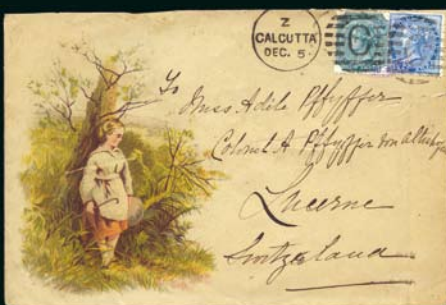 Z
CALCUTTA
DEC. 5.
C
To
Miss Adile Pffyffer
Colonel A Pffyffer von Altishofen
Lucerne
Switzerland